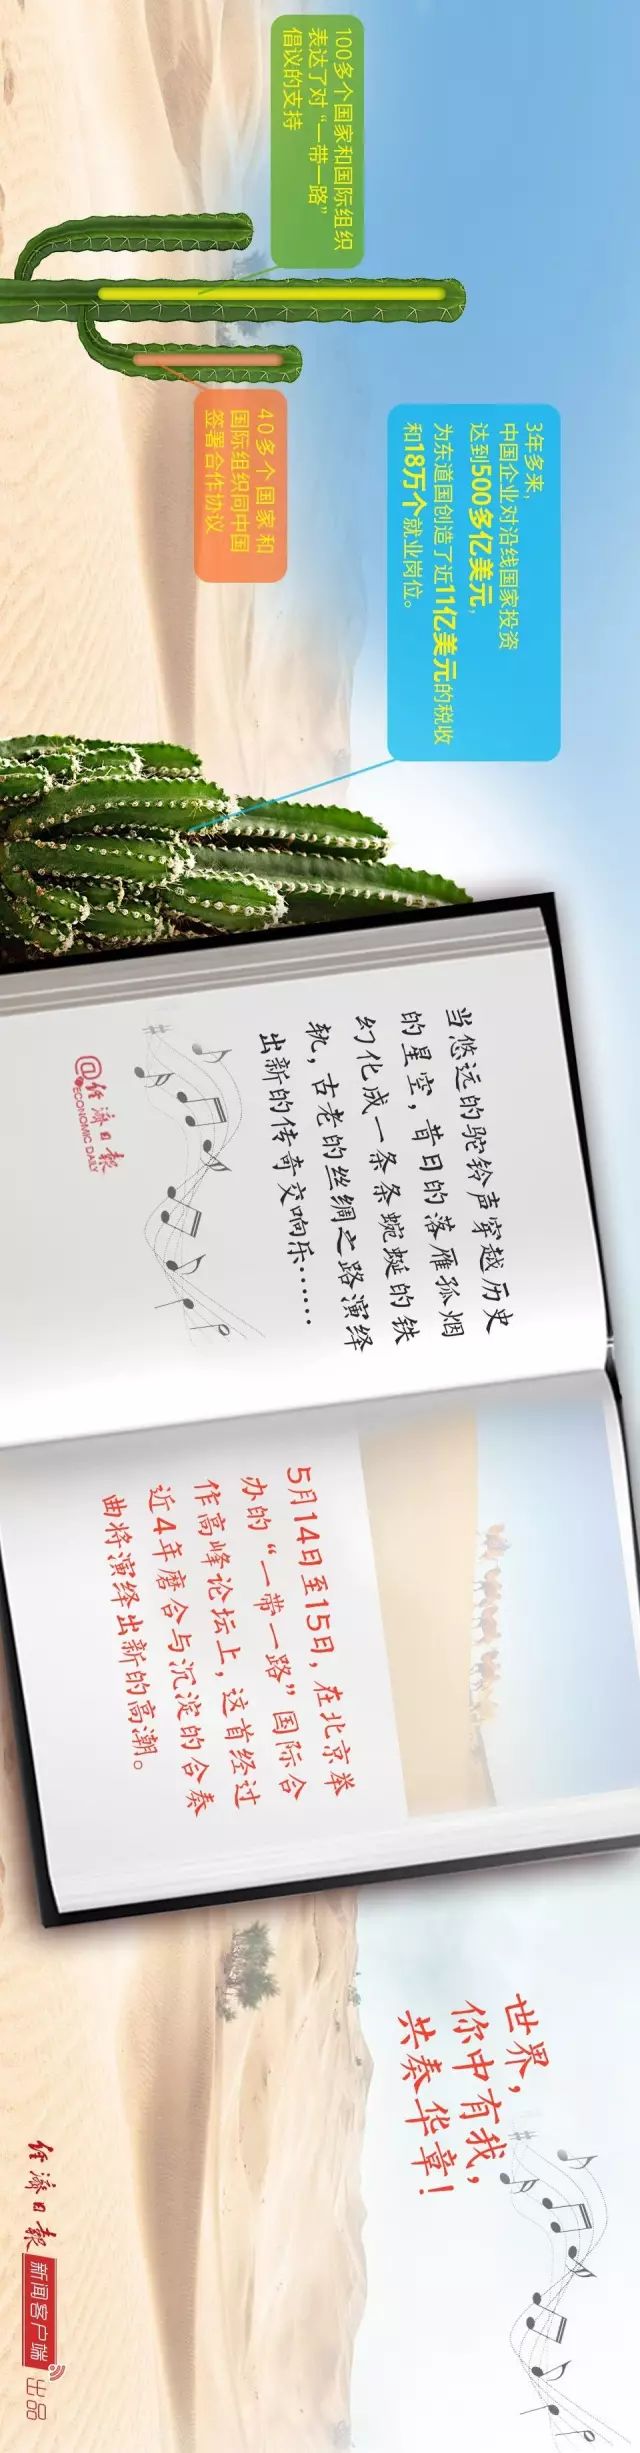 100多个国家和国际组织
表达了对“一带一路”
倡议的支持
40多个国家和
国际组织同中国
签署合作协议
3年多来，
中国企业对沿线国家投资
达到500多亿美元，
为东道国创造了近11亿美元的税收
和18万个就业岗位。
当悠远的驼铃声穿越历史
的星空，昔日的落雁孤烟
幻化成一条条蜿蜒的铁
轨，古老的丝绸之路演绎
出新的传奇交响乐……
@经济日报
ECONOMIC DAILY
5月14日至15日，在北京举
办的“一带一路”国际合
作高峰论坛上，这首经过
近4年磨合与沉淀的合奏
曲将演绎出新的高潮。
世界，
你中有我，
共奏华章！
经济日报 新闻客户端 出品